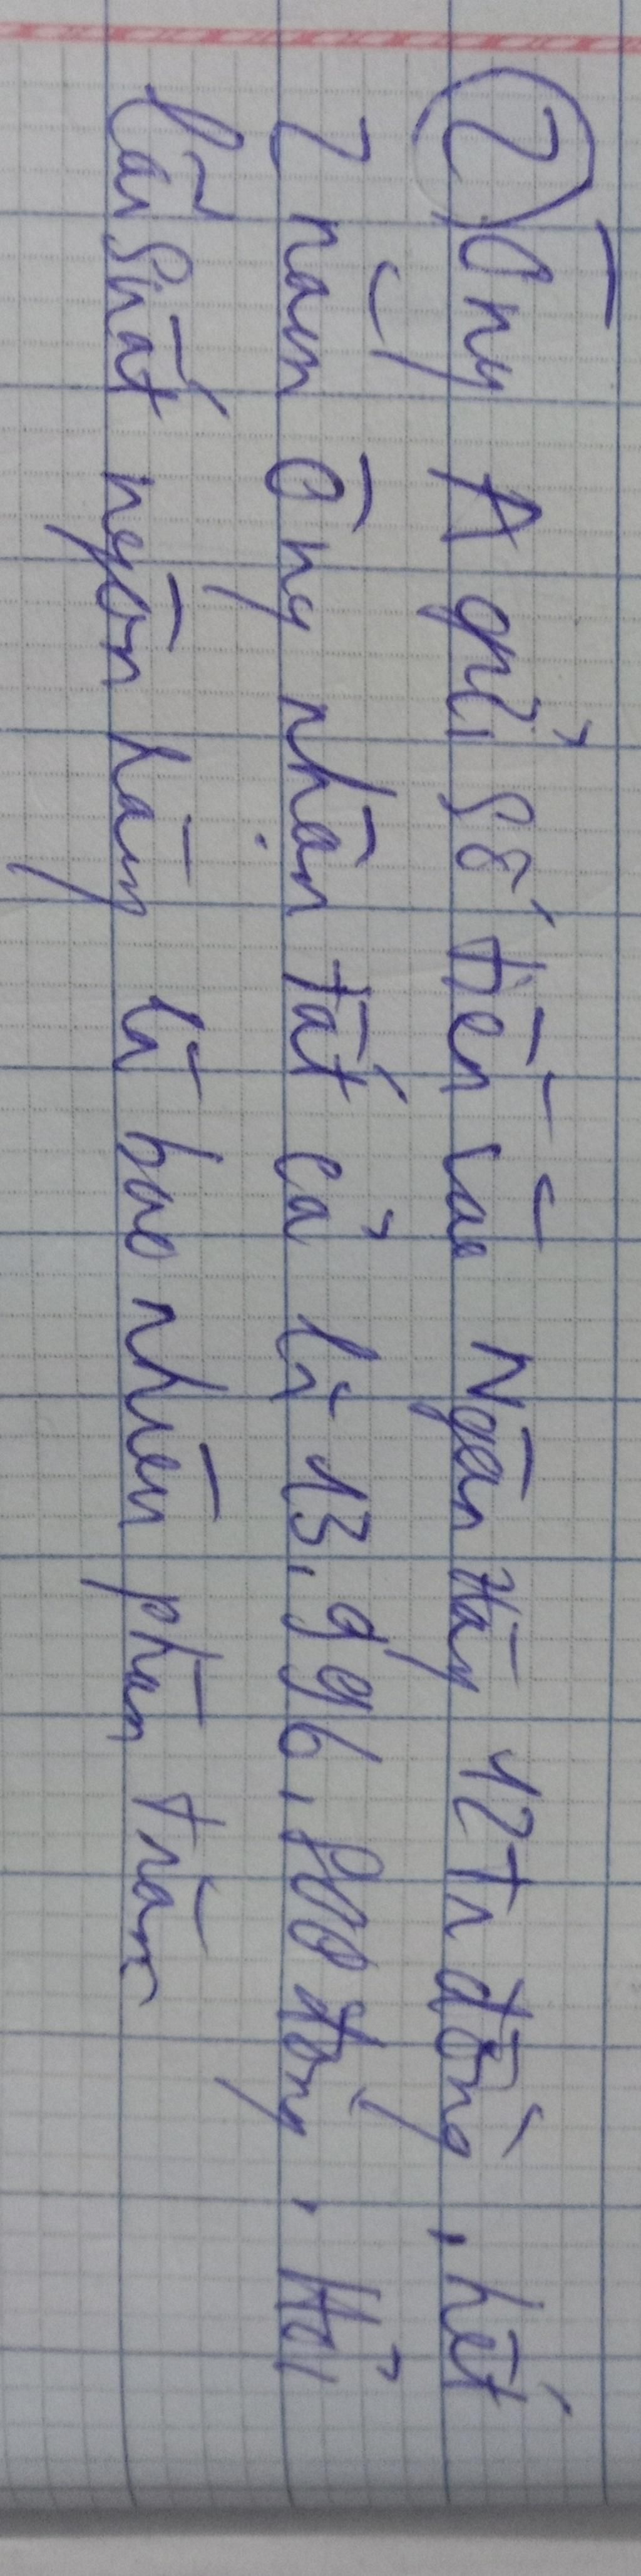 ② Ông A gửi số tiền vào Ngân Hàng 12 Tr đồng, hết
2 năm Ông nhận tất cả là 13.996.800 đồng. Hỏi
lãi suất ngân hàng là bao nhiêu phần trăm